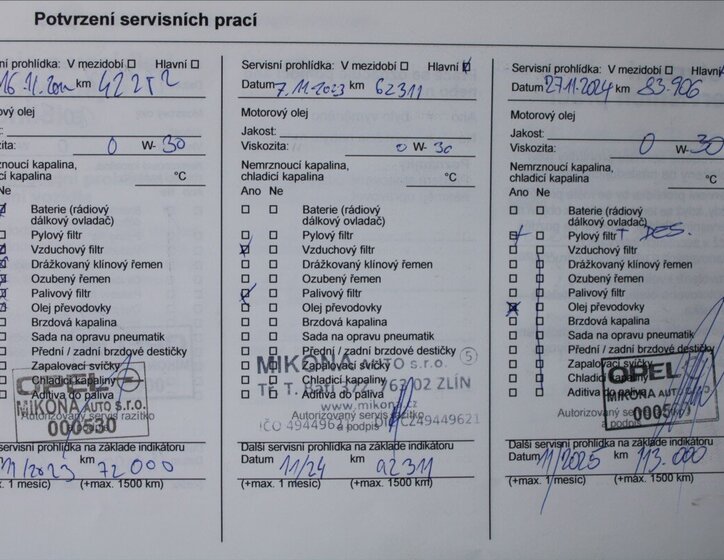 Potvrzení servisních prací
servisní prohlídka: V mezidobí Hlavní
16.11. km 42272
ový olej
kozita: 0 W- 30
rznoucí kapalina,
í kapalina °C
Ne
Baterie (rádiový
dálkový ovladač)
Pylový filtr
Vzduchový filtr
Drážkovaný klínový řemen
Ozubený řemen
Palivový filtr
Olej převodovky
Brzdová kapalina
Sada na opravu pneumatik
Přední / zadní brzdové destičky
Zapalovací svíčky
Chladicí kapaliny
Aditiva do paliva
OPEL
MIKONA AUTO s.r.o.
Autorizovaný servis razítko
000530
servisní prohlídka na základe indikátoru
11/2023 km 72 000
(+max. 1 měsíc) (+max. 1500 km)
Servisní prohlídka: V mezidobí Hlavní
Datum 7.11.2023 km 62311
Motorový olej
Jakost:
Viskozita: 0 W- 30
Nemrznoucí kapalina,
chladicí kapalina °C
Ano Ne
Baterie (rádiový
dálkový ovladač)
Pylový filtr
Vzduchový filtr
Drážkovaný klínový řemen
Ozubený řemen
Palivový filtr
Olej převodovky
Brzdová kapalina
Sada na opravu pneumatik
Přední / zadní brzdové destičky
Zapalovací svíčky
Chladicí kapaliny
Aditiva do paliva
MIKONA AUTO s.r.o. 5
763 02 ZLÍN
www.mikona.cz
Autorizovaný servis razítko
a podpis
Další servisní prohlídka na základe indikátoru
Datum 11/24 km 92311
(+max. 1 měsíc) (+max. 1500 km)
Servisní prohlídka: V mezidobí Hlavní
Datum 27.11.2024 km 83.906
Motorový olej
Jakost:
Viskozita: 0 W- 30
Nemrznoucí kapalina,
chladicí kapalina °C
Ano Ne
Baterie (rádiový
dálkový ovladač)
Pylový filtr + DES.
Vzduchový filtr
Drážkovaný klínový řemen
Ozubený řemen
Palivový filtr
Olej převodovky
Brzdová kapalina
Sada na opravu pneumatik
Přední / zadní brzdové destičky
Zapalovací svíčky
Chladicí kapaliny
Aditiva do paliva
OPEL
MIKONA AUTO
Autorizovaný servis
a podpis
Další servisní prohlídka na základe indikátoru
Datum 11/2025 km 113.000
(+max. 1 měsíc) (+max. 1500 km)